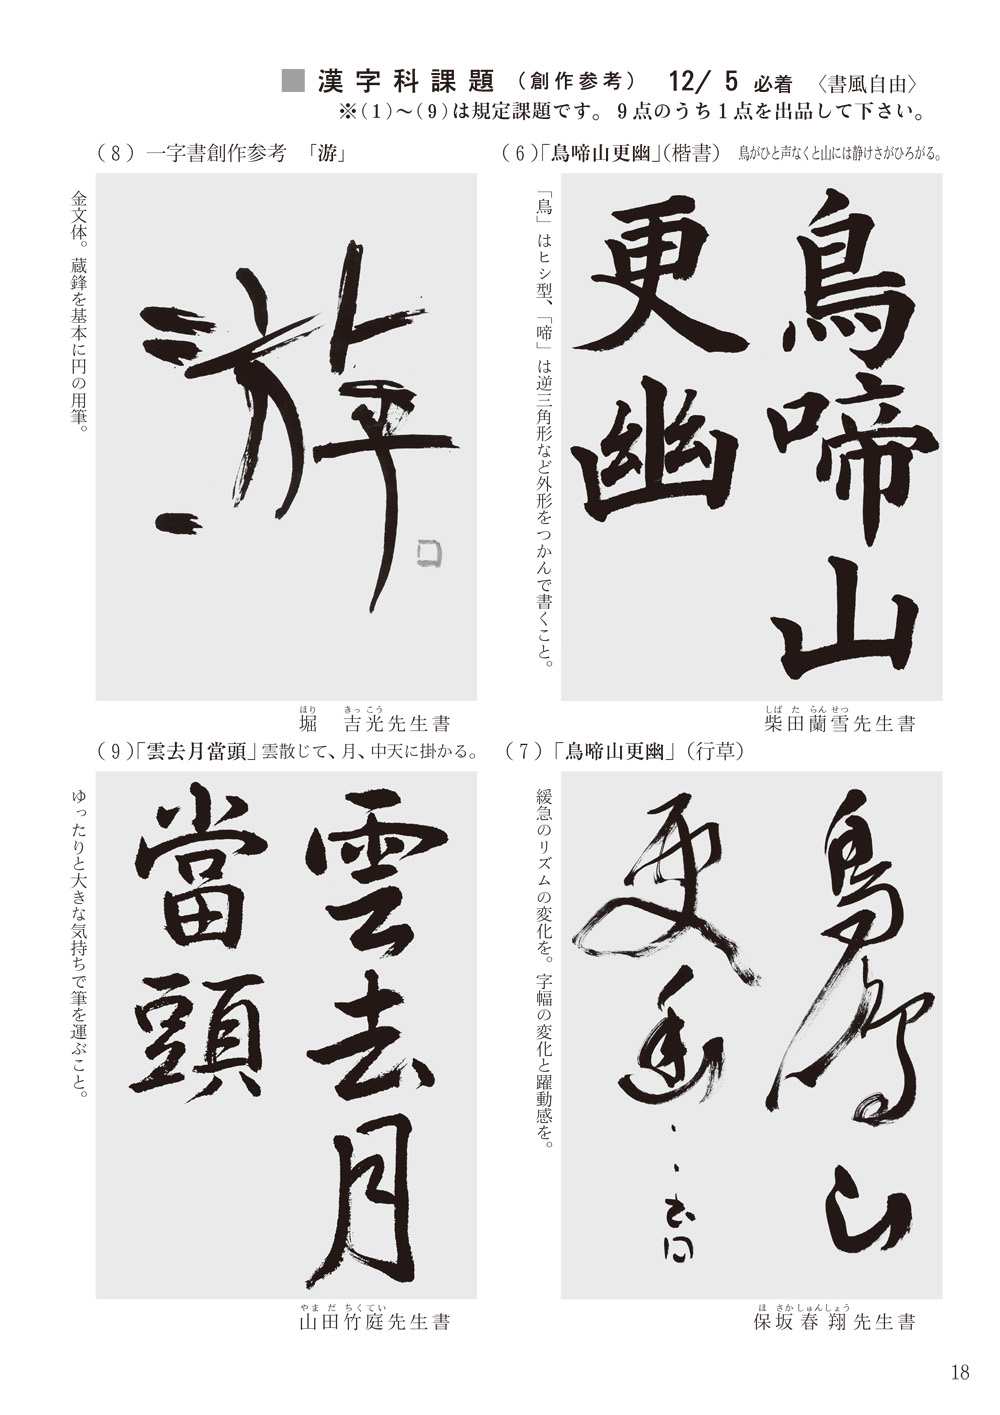 ■ 漢字科課題（創作参考） 12/ 5 必着 〈書風自由〉
※（1）～（9）は規定課題です。9点のうち1点を出品して下さい。
（6）「鳥啼山更幽」（楷書） 鳥がひと声なくと山には静けさがひろがる。
「鳥」はヒシ型、「啼」は逆三角形など外形をつかんで書くこと。
鳥啼山
更幽
しば た らん せつ
柴田蘭雪先生書
（7）「鳥啼山更幽」（行草）
緩急のリズムの変化を。字幅の変化と躍動感を。
鳥啼山
更幽
ほ さか しゅんしょう
保坂春翔先生書
（8）一字書創作参考 「游」
金文体。蔵鋒を基本に円の用筆。
游
ほり きっ こう
堀 吉光先生書
（9）「雲去月當頭」雲散じて、月、中天に掛かる。
ゆったりと大きな気持ちで筆を運ぶこと。
雲去月
當頭
やま だ ちくてい
山田竹庭先生書
18